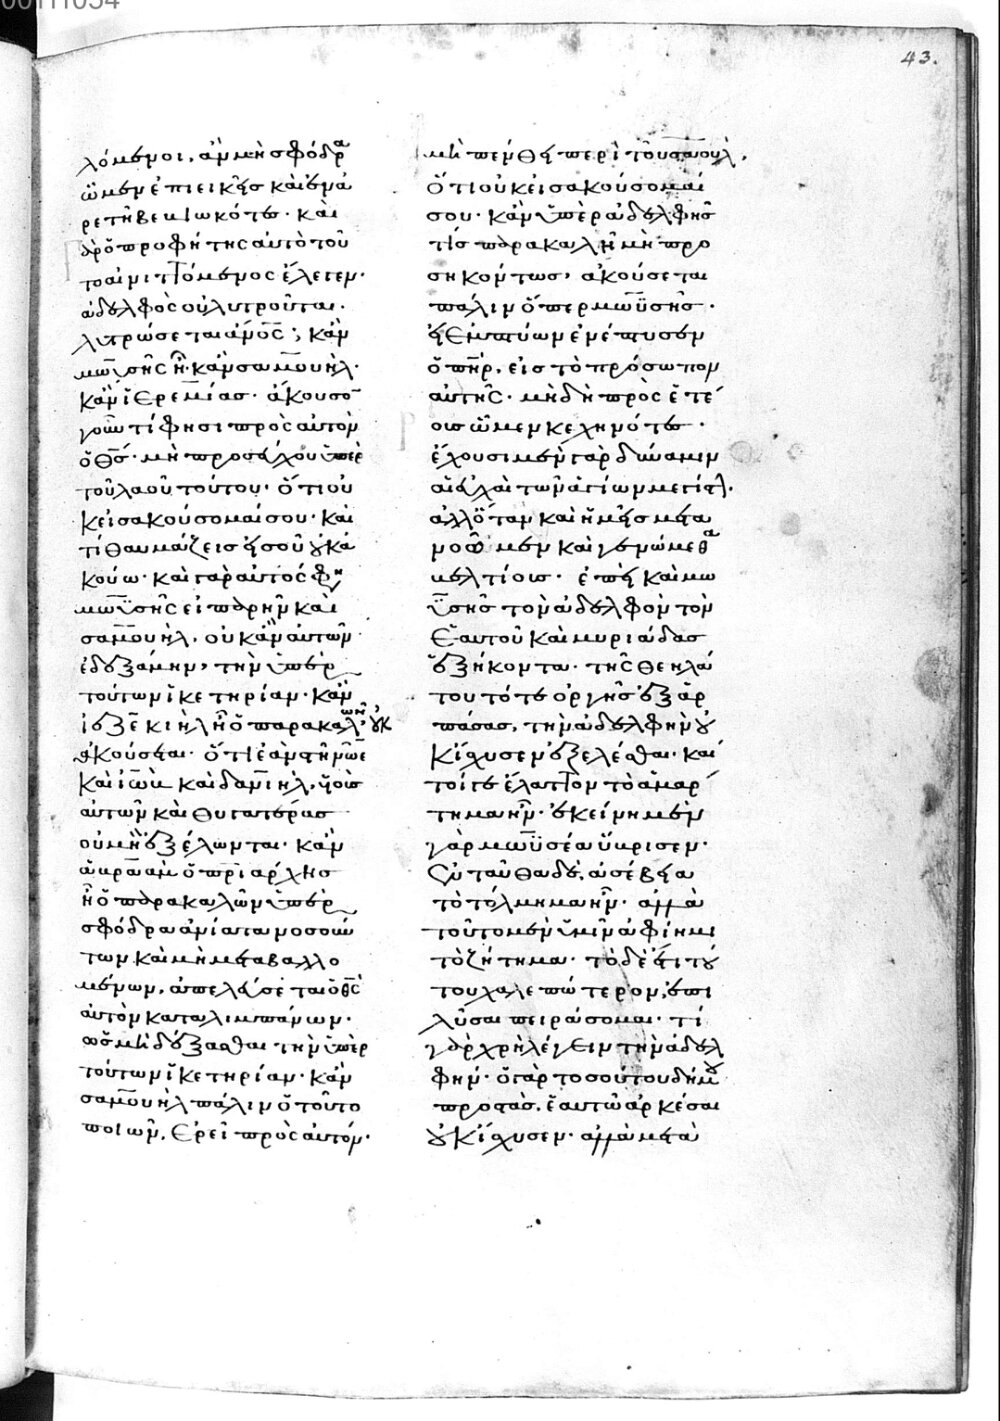 43.
λόμενοι. ἂν μὴ σφόδρα
ὦμεν ἐπιεικεῖς καὶ ἐνα
ρετῆ βεβιωκότες. καὶ
γὰρ ὁ προφήτης αὐτὸ τοῦ
το αἰνιττόμενος ἔλεγεν.
ἀδελφὸς οὐ λυτροῦται.
λυτρώσεται ἄνος; κἂν
μωϋσῆς ἦ. κἂν σαμουὴλ.
κἂν ἱερεμίας. ἄκουσο
γοῦν τί φησι πρὸς αὐτὸν
ὁ θς. μὴ προσεύχου ὑπὲρ
τοῦ λαοῦ τούτου. ὅτι οὐ
κ εἰσακούσομαί σου. καὶ
τί θαυμάζεις εἰ σοῦ οὐκ ἀ
κούω. καὶ γὰρ αὐτός φη
μωϋσῆς εἰ παρῆν καὶ
σαμουὴλ, οὐκ ἂν αὐτῶν
ἐδεξάμην, τὴν ὑπὲρ
τούτων ἱκετηρίαν. κἂν
ἰεζεκιὴλ ἦ ὁ παρακαλῶν, οὐκ
ἀκούσεται. ὅτι ἐὰν στῆ νῶε
καὶ ἰὼβ καὶ δανιὴλ, υἱοὺς
αὐτῶν καὶ θυγατέρας
οὐ μὴ ἐξέλωνται. κἂν
ἀβραὰμ ὁ πριάρχης
ἦ ὁ παρακαλῶν ὑπὲρ
σφόδρα ἀνίατα νοσούν
των καὶ μὴ μεταβαλλο
μένων, ἀπελεύσεται ὁ θς
αὐτὸν καταλιμπάνων.
ὡς μὴ δέξασθαι τὴν ὑπὲρ
τούτων ἱκετηρίαν. κἂν
σαμουὴλ πάλιν ὁ τοῦτο
ποιῶν, ἐρεῖ πρὸς αὐτόν.
μὴ πένθει περὶ τοῦ σαουλ,
ὅτι οὐκ εἰσακούσομαί
σου. κἂν ὑπὲρ ἀδελφῆς
τίς παρακαλῆ μὴ προ
σηκόντως, ἀκούσεται
πάλιν ὅπερ μωϋσῆς.
εἰ ἐμπτύων ἐνέπτυσεν
ὁ πηρ, εἰς τὸ πρόσωπον
αὐτῆς. μὴ δὴ πρὸς ἑτέ
οις ὦμεν κεχηνότες.
ἔχουσι μὲν γὰρ δύναμιν
αἱ εὐχαὶ τῶν ἁγίων μεγίστ.
ἀλλ' ὅταν καὶ ἡμεῖς μετα
νοῶμεν καὶ γενώμεθα
βελτίους. ἐπεὶ καὶ μω
ϋσῆς τὸν ἀδελφὸν τὸν
ἑαυτοῦ καὶ μυριάδας
ἑξήκοντα. τῆς θεηλά
του τότε ὀργῆς ἐξαρ
πάσας, τὴν ἀδελφὴν οὐ
κ ἴσχυσεν ἐξελέσθαι. καί
τοί γε ἔλαττον τὸ ἁμάρ
τημα ἦν. ἐκείνη μὲν
γὰρ μωϋσέα ὕβρισεν.
ἐνταῦθα δὲ, ἀσέβεια
τὸ τόλμημα ἦν. ἀλλὰ
τοῦτο μὲν ὑμῖν ἀφίημι
τὸ ζήτημα. τὸ δὲ ἔτι τού
του χαλεπώτερον, ἐπι
λῦσαι πειράσομαι. τί
γὰρ χρὴ λέγειν τὴν ἀδελ
φήν. ὁ γὰρ τοσούτου δήμου
προστὰς, ἑαυτῶ ἀρκέσαι
οὐκ ἴσχυσεν. ἀλλὰ μετὰ